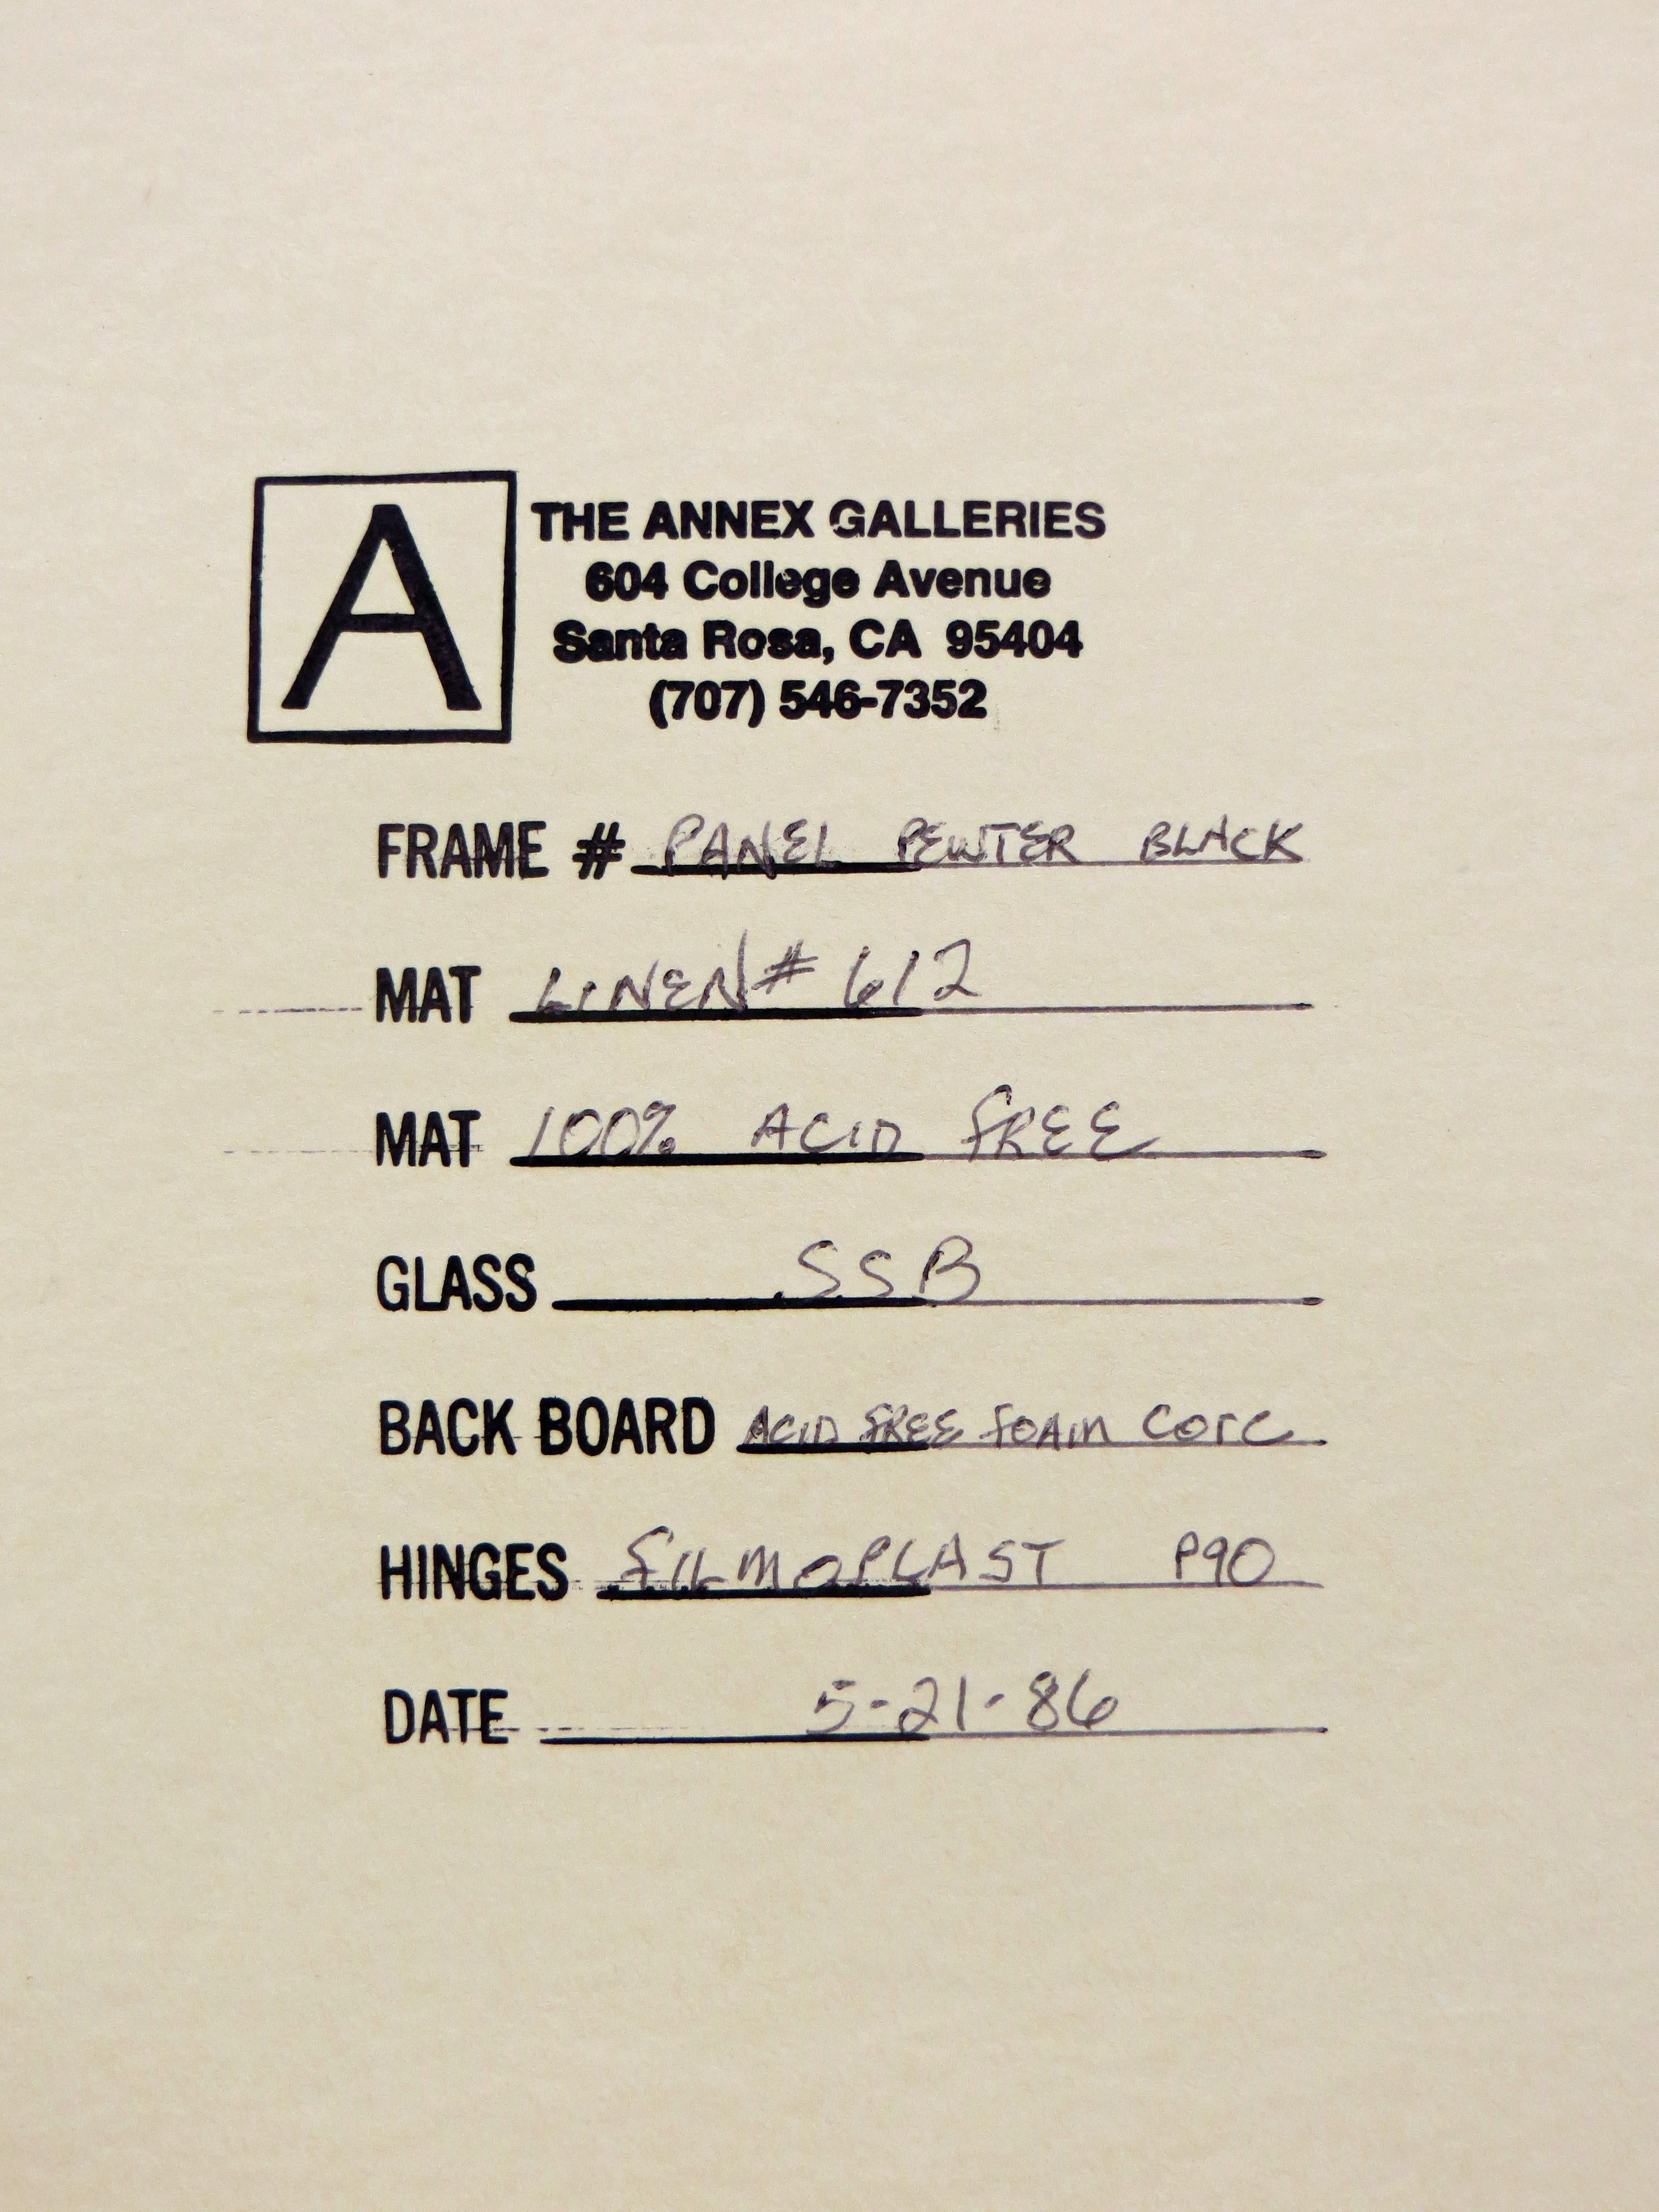 A
THE ANNEX GALLERIES
604 College Avenue
Santa Rosa, CA 95404
(707) 546-7352
FRAME # PANEL PEWTER BLACK
MAT LINEN # 612
MAT 100% ACID FREE
GLASS SSB
BACK BOARD ACID FREE FOAM Core
HINGES FILMOPLAST P90
DATE 5-21-86